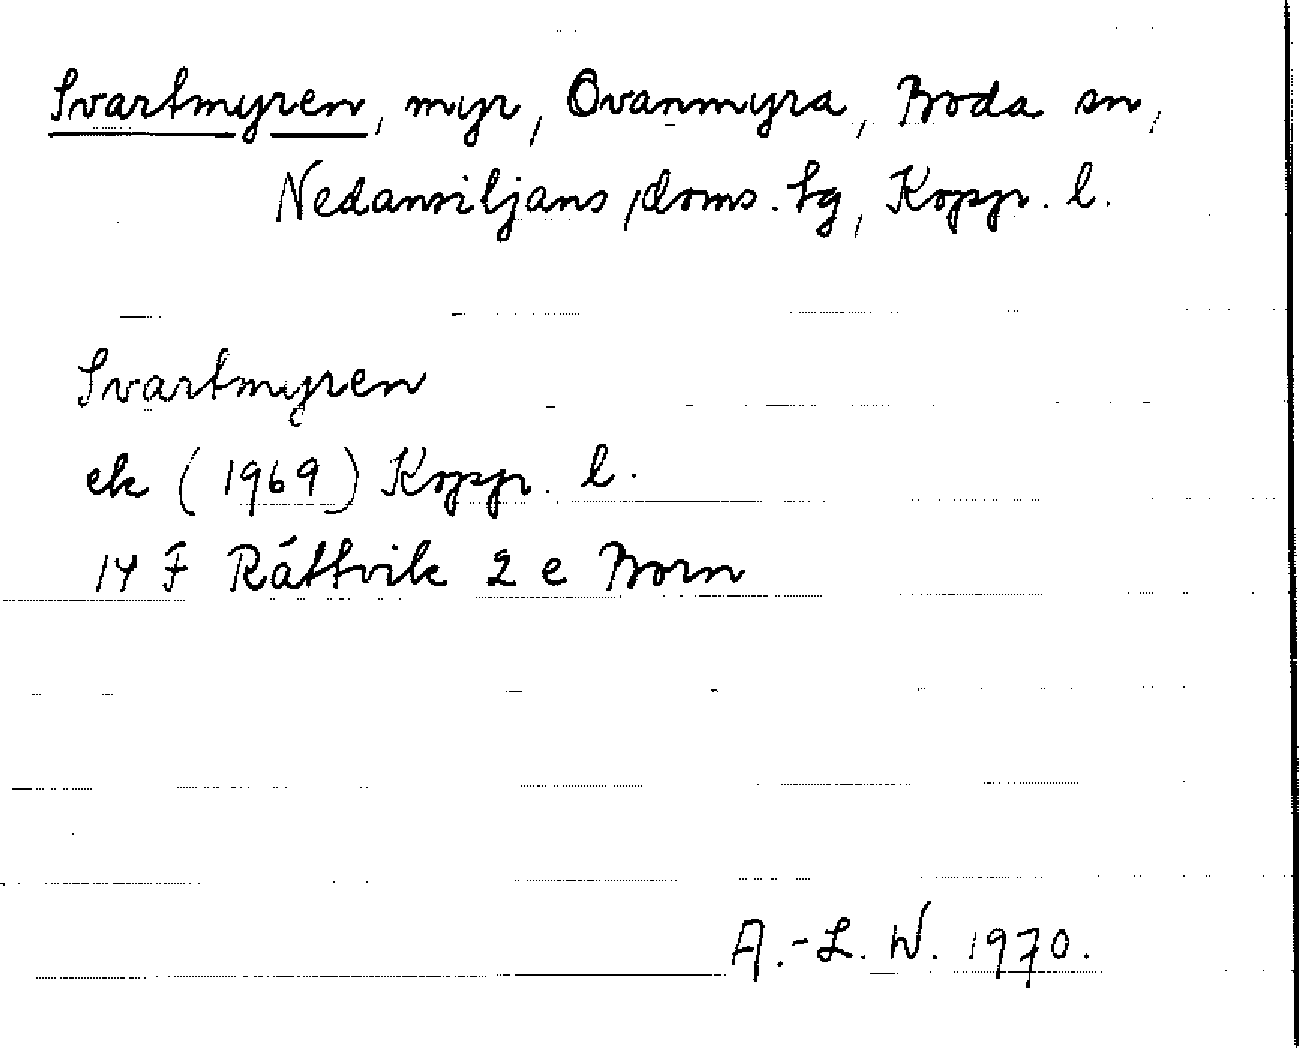 Svartmyren, myr, Ovanmyra, Boda sn,
Nedansiljans doms. tg, Koppr. l.
Svartmyren
ek (1969) Koppr. l.
14 F Rättvik 2 e Born
A.-L. W. 1970.